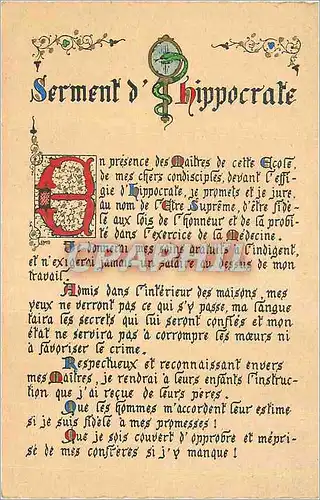 Serment d' hippocrate
En présence des Maîtres de cette École,
de mes chers condisciples, devant l'effi-
gie d'Hippocrate, je promets et je jure,
au nom de l'Être Suprême, d'être fidè-
le aux lois de l'honneur et de la probi-
té dans l'exercice de la Médecine.
Je donnerai mes soins gratuits à l'indigent,
et n'exigerai jamais un salaire au dessus de mon
travail.
Admis dans l'intérieur des maisons, mes
yeux ne verront pas ce qui s'y passe, ma langue
taira les secrets qui lui seront confiés et mon
état ne servira pas à corrompre les mœurs ni
à favoriser le crime.
Respectueux et reconnaissant envers
mes Maîtres, je rendrai à leurs enfants l'instruc-
tion que j'ai reçue de leurs pères.
Que les hommes m'accordent leur estime
si je suis fidèle à mes promesses !
Que je sois couvert d'opprobre et mépri-
sé de mes confrères si j'y manque !